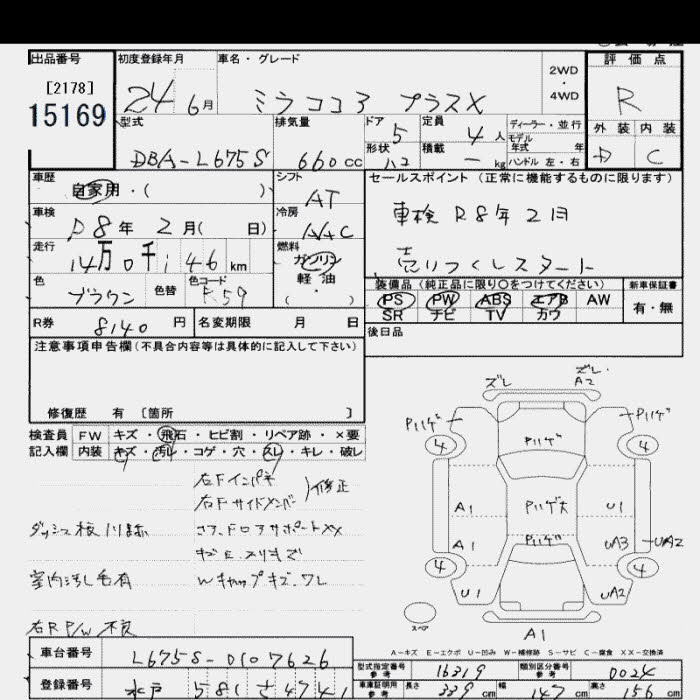 出品番号 初度登録年月 車名・グレード 評価点
[2178]
15169
24 6月 ミラココア プラスX
2WD
・
4WD
R
型式 排気量 ドア 定員 ディーラー・並行 外装 内装
DBA-L675S 660cc 5 4人
モデル
年式 年
形状 積載 kg ハンドル 左・右
D C
車歴 シフト セールスポイント (正常に機能するものに限ります)
自家用・( )
AT
車検 冷房
R8年 2月( 日) AAC
車検 R8年2月
走行 燃料
14万0千146km ガソリン
軽油
・
( )
売りつくしスタート
色 色替 色コード
ブラウン F59
装備品 (純正品に限り○をつけてください) 新車保証書
PS PW ABS エアB AW
SR ナビ TV カワ
有・無
R券 8140円 名変期限 月 日
後日品
注意事項申告欄 (不具合内容等は具体的に記入して下さい)
修復歴 有 [箇所 ]
検査員 FW キズ・飛石・ヒビ割・リペア跡・×要
記入欄 内装 キズ・汚レ・コゲ・穴・スレ・キレ・破レ
右Fインパネ
右Fサイドメンバー
修正
ダッシュ板ハリ跡
室内汚し毛有
Wキャップキズ・ワレ
右R P/W 不良
ズレ
ズレ・
A2
Pハゲ Pハゲ Pハゲ
4 4
A1 Pハゲ大 U1
A1 Pハゲ UA3 UA2
4 4
U1 UA2
スペア
A1
A-キズ E-エクボ U-凹み W-補修跡 S-サビ C-腐食 XX-交換済
車台番号 L675S-0107626
型式指定番号
参考
16319
類別区分番号
参考
0024
登録番号 水戸 581 さ 4741
車庫証明用
参考
長さ 339cm 幅 147cm 高さ 156cm